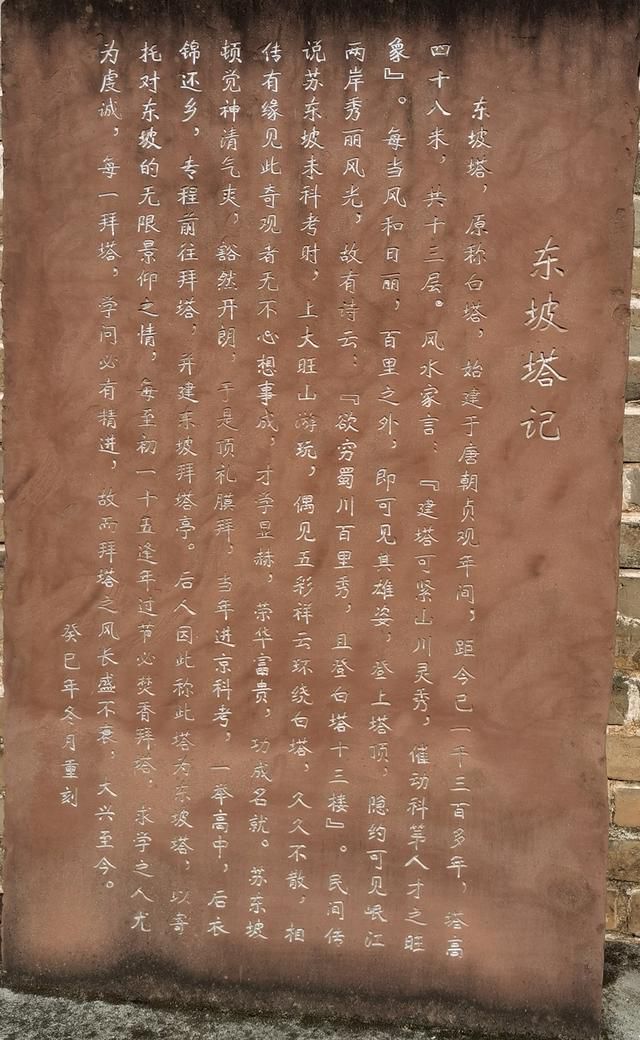 东坡塔记
东坡塔，原称白塔，始建于唐朝贞观年间，距今已一千三百多年，塔高
四十八米，共十三层。风水家言：『建塔可紧山川灵秀，催动科第人才之旺
象』。每当风和日丽，百里之外，即可见其雄姿，登上塔顶，隐约可见岷江
两岸秀丽风光，故有诗云：『欲穷蜀川百里秀，且登白塔十三楼』。民间传
说苏东坡未科考时，上大旺山游玩，偶见五彩祥云环绕白塔，久久不散，相
传有缘见此奇观者无不心想事成，才学显赫，荣华富贵，功成名就。苏东坡
顿觉神清气爽，豁然开朗，于是顶礼膜拜，当年进京科考，一举高中，后衣
锦还乡，专程前往拜塔，并建东坡拜塔亭。后人因此称此塔为东坡塔，以寄
托对东坡的无限景仰之情，每至初一十五逢年过节必焚香拜塔，求学之人尤
为虔诚，每一拜塔，学问必有精进，故而拜塔之风长盛不衰，大兴至今。
癸巳年冬月重刻